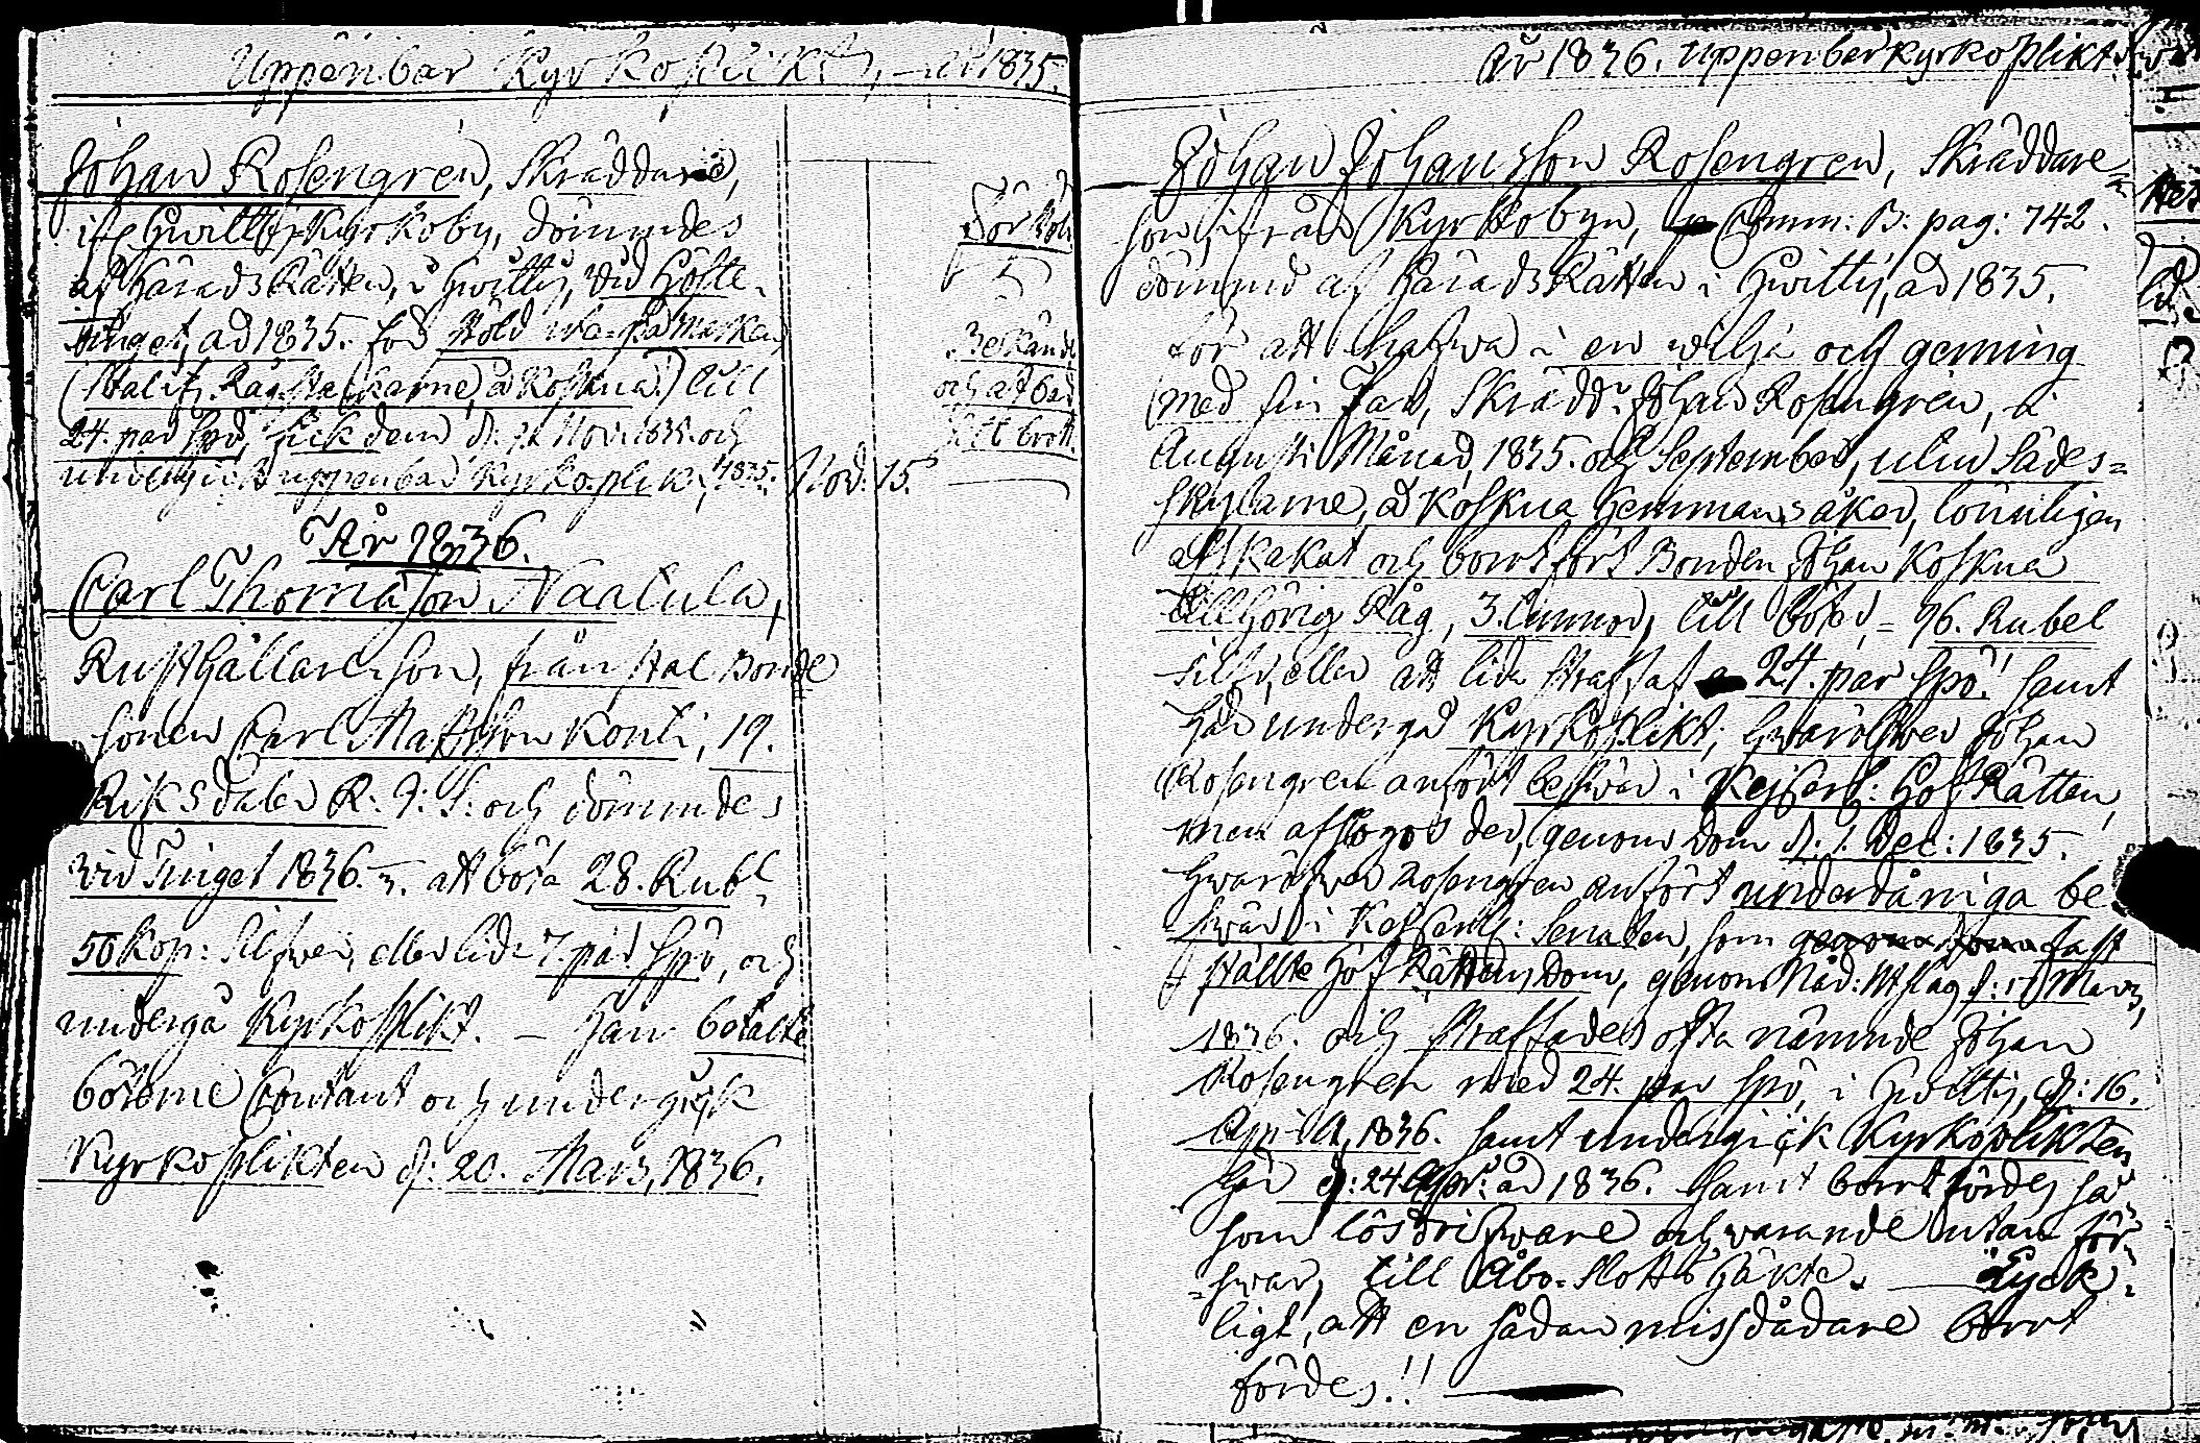 Uppenbar Kyrkoplikt, år 1835.
Johan Rosengren, Skräddare,
ifr Hwittis Kyrkoby, dömmdes
af HäradsRätten, i Hwittis, vid Höste-
tinget, åd 1835. för stöld
(stulit Råg åd Koskua) till
24. par spö, fick dem d. Nov. 1835. och
undergick uppenbar Kyrkoplikt, 1835. Nov: 15.
År 1836.
Carl Thomasson Naatula,
Rusthållareson, från stal Bonde
sonen Carl Mattsson Konti, 19.
Riksdaler R: G: S: och dömmdes
vid Tinget 1836. att böta 28. Rub:
50 Kop: Silfwer, eller lida 7. par spö, och
undergå Kyrkoplikt. – Han betalte
böterne Contant och undergick
Kyrkoplikten d: 20. Mars, 1836.
Bekände
och afbad
sitt brott
År 1836. Uppenbar kyrkoplikt.
Johan Johansson Rosengren, Skräddare-
son, ifrån Kyrkobyn, Comm: B: pag: 742.
dömmd af HäradsRätten i Hwittis, åd 1835.
för att hafwa i en wilja och gerning
med sin Far, Skrädd: Johan Rosengren, i
Augusti Månad, 1835. och September, utur Sädes=
skylarne, å Koskua Hemmans åker, lönnligen
afskakat och bortfört Bonden Johan Koskua
tillhörig Råg, 3. tunnor, till böter, = 96. Rubel
Silfr, eller att lida straffaf 24. par spö! samt
här undergå Kyrkoplikt; hwaröfwer Johan
Rosengren anfört beswär i Kejserl: HofRätten,
men afslogos der, genom Dom d. 1. Dec: 1835.
Hwaröfwer Rosengren anfört underdåniga be-
swär i Kejserl: Senaten, som genom dom fast
ställte HofRättens Dom, genom Nåd: Utslag d: Mars,
1836. och straffades ofta nämnde Johan
Rosengren med 24. par spö, i Hwittis, d: 16.
April, 1836. samt undergick Kyrkoplikten
här d: 24 Apr: åd 1836. samt bortfördes så
som lösdrifware och warande utan för-
=swar, till Åbo-Slotts Häkte. — Lyck-
ligt, att en sådan missdådare bort
fördes.!!